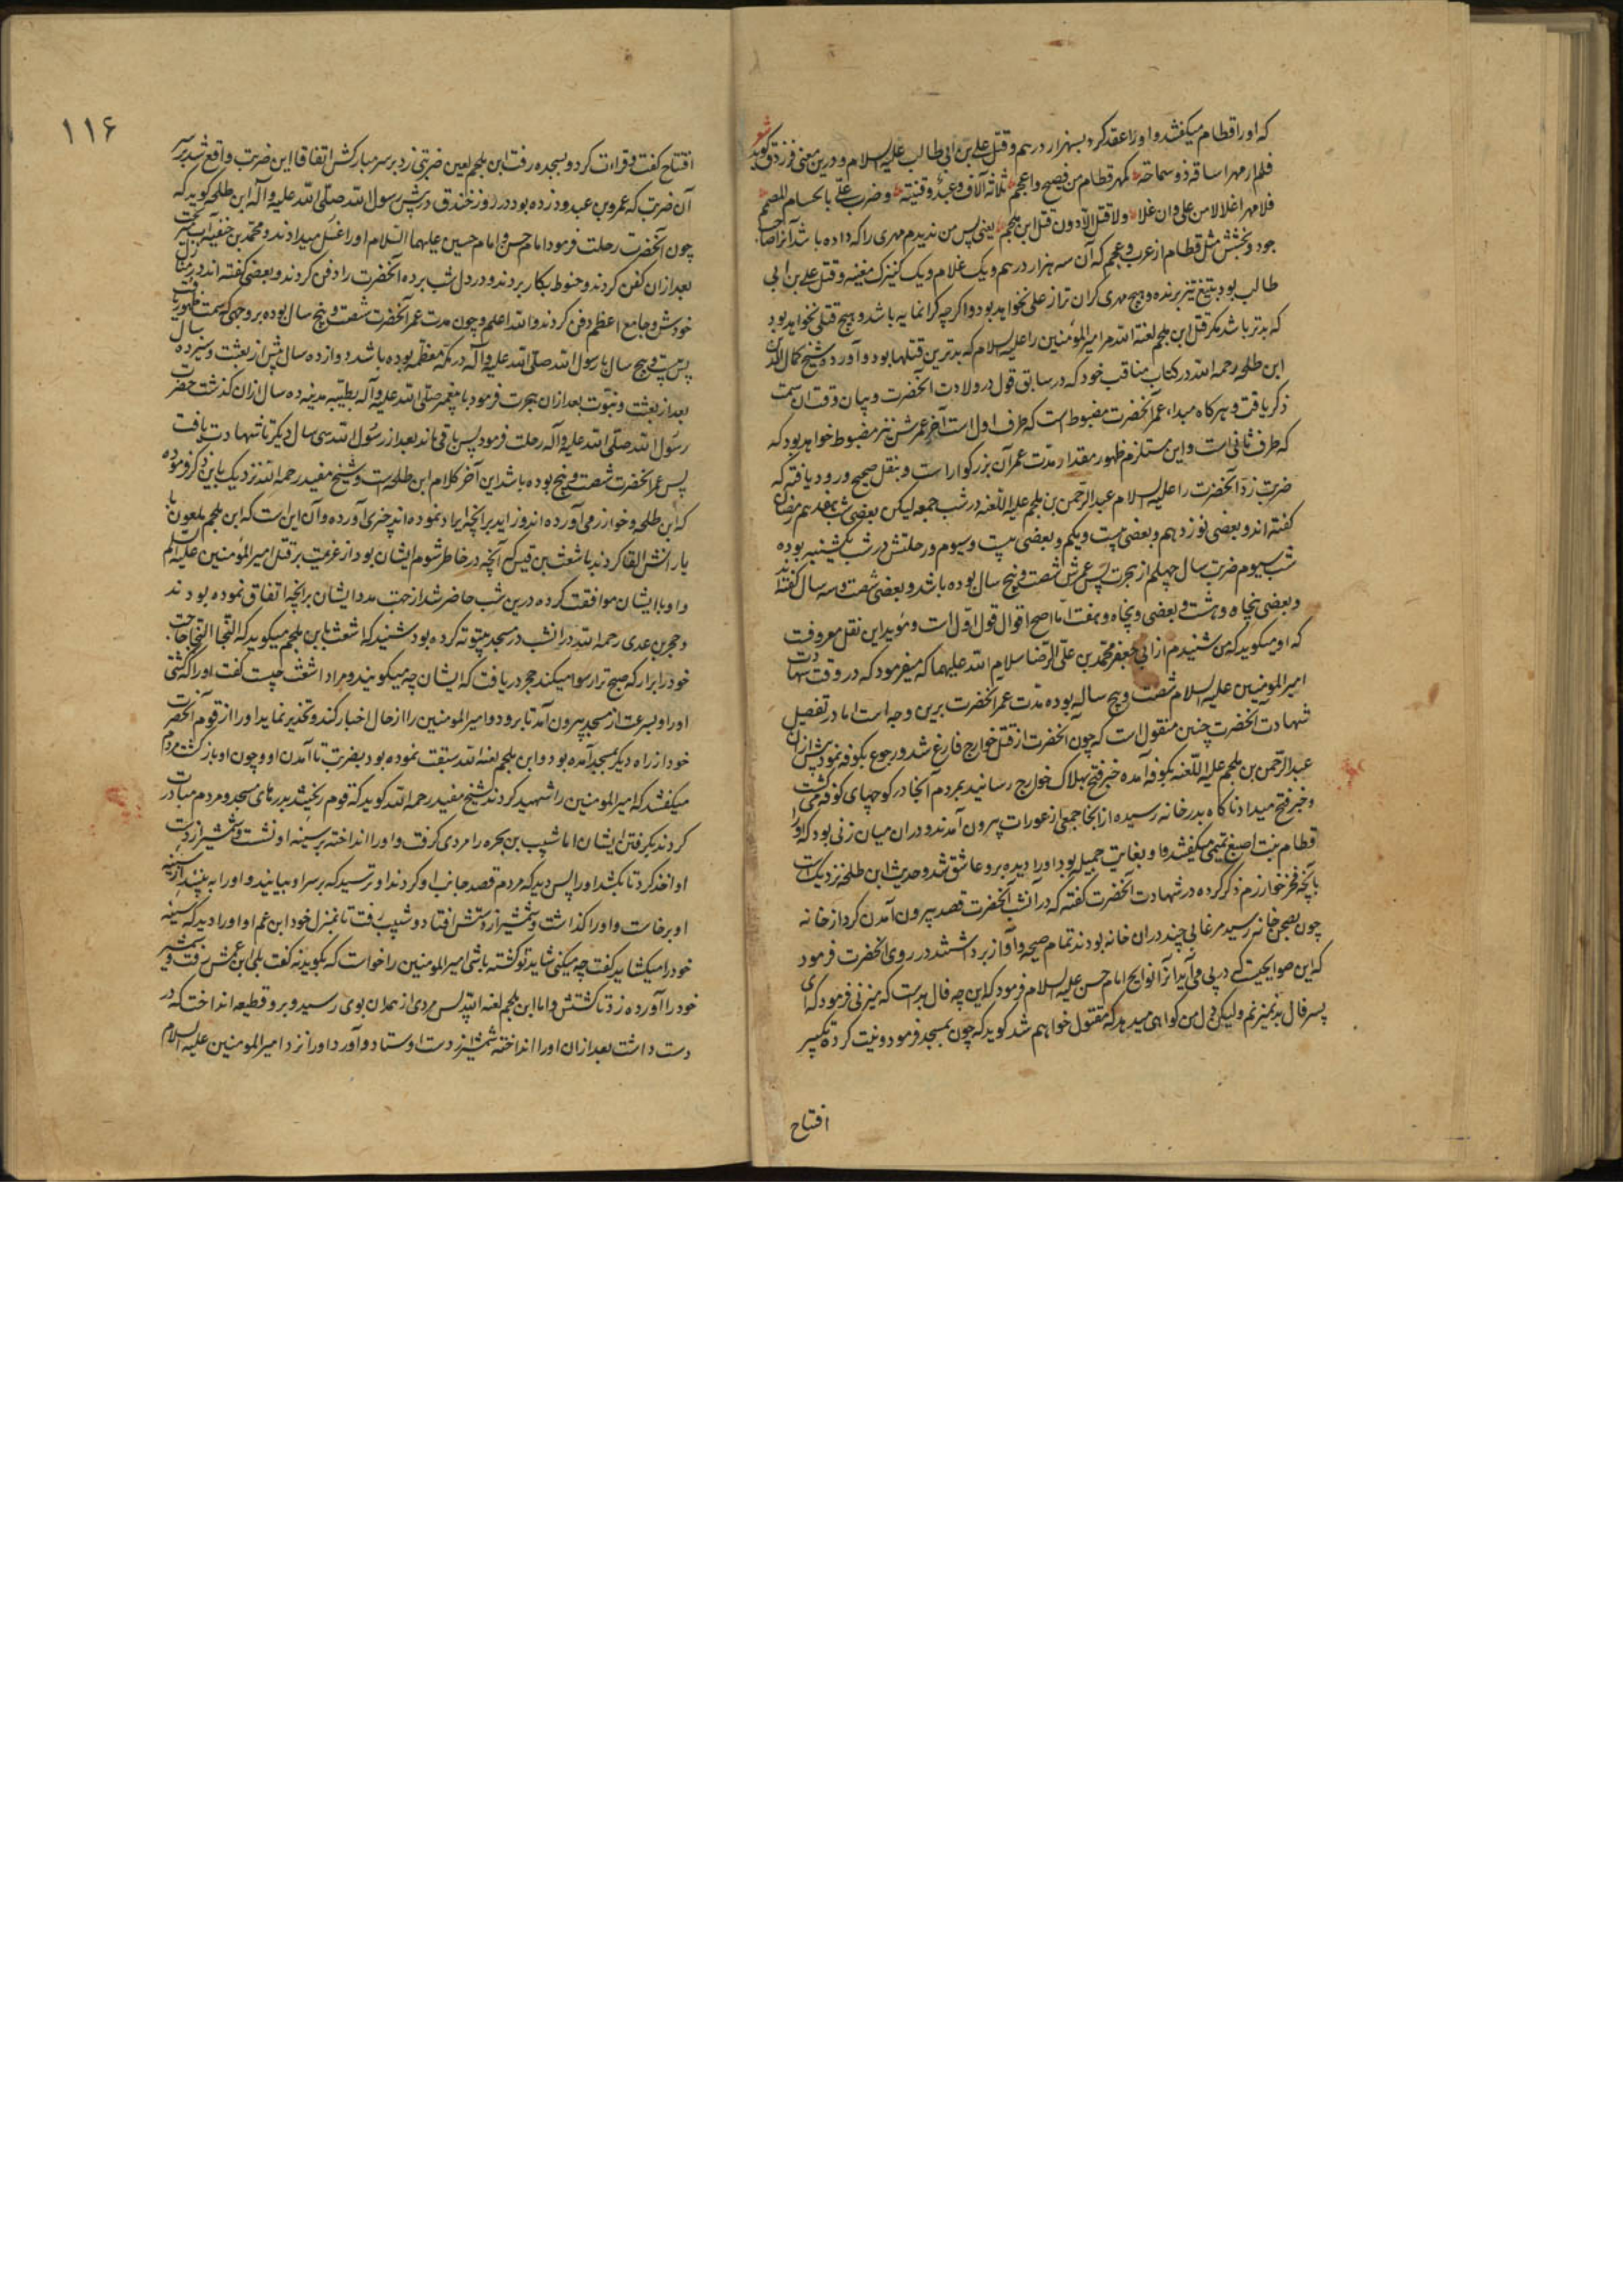 که او را قطام میگفتند و او را عقد کرد بسه هزار درهم و قتل علی بن ابی طالب علیه السلام و درین معنی فرزدق گوید شعر
فلم ار مهرا ساقه ذو سماحة کمهر قطام من فصیح و اعجم ثلاثة آلاف و عبد و قینة و ضرب علی بالحسام المصمم
فلا مهر اغلا من علی و ان غلا ولا قتل الا دون قتل ابن ملجم یعنی پس من ندیدم مهری را که داده باشد آنرا صاحب
جود و بخشش مثل قطام از عرب و عجم که آن سه هزار درهم و یک غلام و یک کنیزک مغنیه و قتل علی بن ابی
طالب بود بتیغ تیز برنده و هیچ مهری گران تر از علی نخواهد بود و اگرچه گرانمایه باشد و هیچ قتلی نخواهد بود
که بدتر باشد مگر قتل ابن ملجم لعنه الله مر امیر المؤمنین را علیه السلام که بدترین قتلها بود و آورده شیخ کمال الدین
ابن طلحه رحمه الله در کتاب مناقب خود که در سابق قول در ولادت آنحضرت و بیان وقت آن سمت
ذکر یافت و هرگاه مبداء عمر آنحضرت مضبوط است که طرف اول است آخر عمرش نیز مضبوط خواهد بود که
که طرف ثانی است و این مستلزم ظهور مقدار مدت عمر آن بزرگوار است و بنقل صحیح ورود یافته که
ضربت زد آنحضرت را علیه السلام عبد الرحمن بن ملجم علیه اللعنه در شب جمعه لیکن بعضی شب هفدهم رمضان
گفته اند و بعضی نوزدهم و بعضی بیست و یکم و بعضی بیست و سیوم و رحلتش در شب یکشنبه بوده
شب سیوم ضربت سال چهلم از هجرت پس عمرش شصت و پنج سال بوده باشد و بعضی شصت و سه سال گفته اند
و بعضی پنجاه و هشت و بعضی و پنجاه و هفت اما اصح اقوال قول اول است و مؤید این نقل معروفت
که او میگوید که من شنیدم از ابی جعفر محمد بن علی الرضا سلام الله علیهما که میفرمود که در وقت شهادت
امیر المومنین علیه السلام شصت و پنج ساله بوده مدت عمر آنحضرت برین وجه است اما در تفصیل
شهادت آنحضرت چنین منقول است که چون آنحضرت از قتل خوارج فارغ شد و رجوع بکوفه نمود پیش از آن
عبد الرحمن بن ملجم علیه اللعنه بکوفه آمده خبر فتح بهلاک خوارج رسانید بمردم آنجا در کوچهای کوفه می گشت
و خبر فتح میداد ناگاه بدر خانه رسیده از آنجا جمعی از عورات بیرون آمدند و در آن میان زنی بود که او را
قطام بنت اصبغ تمیمی میگفتند و او بغایت جمیل بود او را دیده برو عاشق شد و حدیث ابن طلحه نزدیک است
بآنچه فخر خوارزم ذکر کرده در شهادت آنحضرت گفته که در آنشب آنحضرت قصد بیرون آمدن کرد از خانه
چون بصحن خانه رسید مرغابی چند در آن خانه بودند تمام صیحه و آواز برداشتند در روی آنحضرت فرمود
که این صوایحیست که در پی در آید آنرا نوایح امام حسن علیه السلام فرمود که این چه فال بد است که میزنی فرمود که ای
پسر فال بد نمیزنم ولیکن دل من گواهی میدهد که مقتول خواهم شد گوید که چون بمسجد فرمود و نیت کرد تکبیر
افتتاح
۱۱۶
افتتاح گفت و قراءت کرد و بسجده رفت ابن ملجم لعین ضربتی زد بر سر مبارکش اتفاقا این ضربت واقع شد بر
آن ضربت که عمرو بن عبد ود زده بود در روز خندق در پیش رسول الله صلی الله علیه و آله ابن طلحه گوید که
چون آنحضرت رحلت فرمود امام حسن و امام حسین علیهما السلام او را غسل میدادند و محمد بن حنفیه آب میریخت
بعد از آن کفن کردند و حنوط بکار بردند و در دل شب برده آنحضرت را دفن کردند و بعضی گفته اند در منزل
خودش و جامع اعظم دفن کردند و الله اعلم و چون مدت عمر آنحضرت شصت و پنج سال بوده بر وجهی که سمت ظهور یافت
پس بیست و پنج سال با رسول الله صلی الله علیه و آله در مکه معظمه بوده باشد دوازده سال پیش از بعثت و سیزده سال
بعد از بعثت و نبوت بعد از آن هجرت فرمود با پیغمبر صلی الله علیه و آله بطیبه مدینه ده سال از آن گذشت حضرت
رسول الله صلی الله علیه و آله رحلت فرمود پس باقی ماند بعد از رسول الله سی سال دیگر تا شهادت یافت
پس عمر آنحضرت شصت و پنج بوده باشد این آخر کلام ابن طلحه است و شیخ مفید رحمه الله نزدیک باین ذکر فرموده
که ابن طلحه و خوارزمی آورده اند و زاید بر آنچه ایراد نموده اند چیزی آورده و آن این است که ابن ملجم ملعون با
یارانش القا کردند باشعث بن قیس آنچه در خاطر شوم ایشان بود از عزیمت بر قتل امیر المؤمنین علیه السلام
و او با ایشان موافقت کرده درین شب حاضر شد از جهت مدد ایشان بر آنچه اتفاق نموده بودند
و حجر بن عدی رحمه الله در آنشب در مسجد بیتوته کرده بود شنید که اشعث بابن ملجم میگوید که النجا النجا حاجت
خود را برآر که صبح ترا رسوا میکند حجر دریافت که ایشان چه میگویند و مراد اشعث چیست گفت او را که کشتی
او را و بسرعت از مسجد بیرون آمد تا برود و امیر المومنین را از حال اخبار کند و تحذیر نماید او را از قوم آنحضرت
خود از راه دیگر بمسجد آمده بود و ابن ملجم لعنه الله سبقت نموده بود بضربت تا آمدن او و چون او بازگشت مردم
میگفتند که امیر المومنین را شهید کردند شیخ مفید رحمه الله گوید که قوم ریختند بدرهای مسجد و مردم مبادرت
کردند بگرفتن ایشان اما شبیب بن بجره را مردی گرفت و او را انداخته بر سینه او نشست و شمشیر از دست
او اخذ کرد تا بکشد او را پس دید که مردم قصد جانب او کردند او ترسید که بر سر او بیایند و او را به بینند از سینه
او برخاست و او را گذاشت و شمشیر از دستش افتاد و شبیب رفت تا بمنزل خود ابن عم او او را دید که سینه
خود را میکشاید گفت چه میکنی شاید تو کشته باشی امیر المومنین را خواست که بگوید نه گفت بلی ابن عمش رفت و شمشیر
خود را آورده زد تا کشتش و اما ابن ملجم لعنه الله پس مردی از همدان بوی رسید و برو قطیعه انداخت که در
دست داشت بعد از آن او را انداخته شمشیر از دست وستاد و آورد او را نزد امیر المومنین علیه السلام